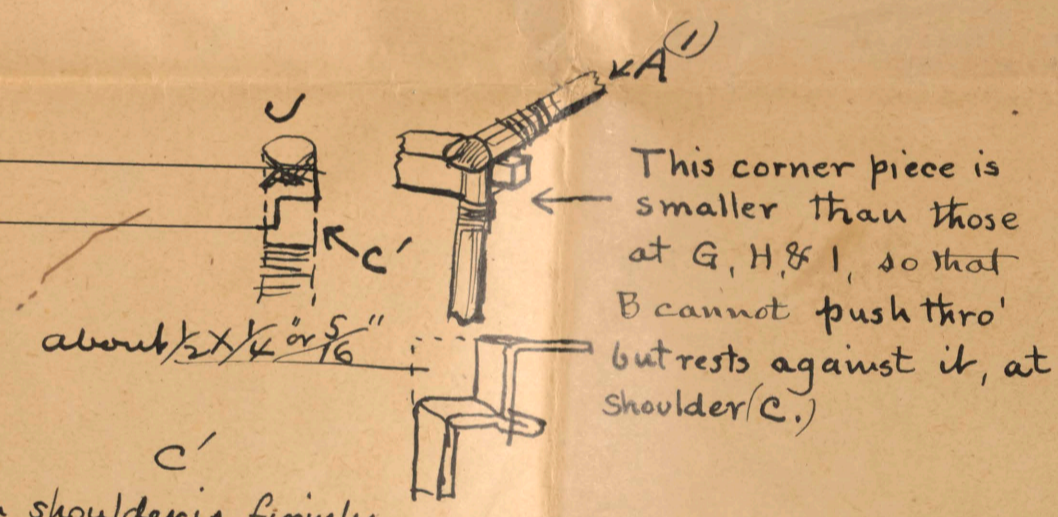 A (1)
J
This corner piece is
smaller than those
at G, H, & I, so that
B cannot push thro'
but rests against it, at
shoulder (C.)
C'
about 1/2 X 1/4" or 5/16"
C'
shoulder is firmly